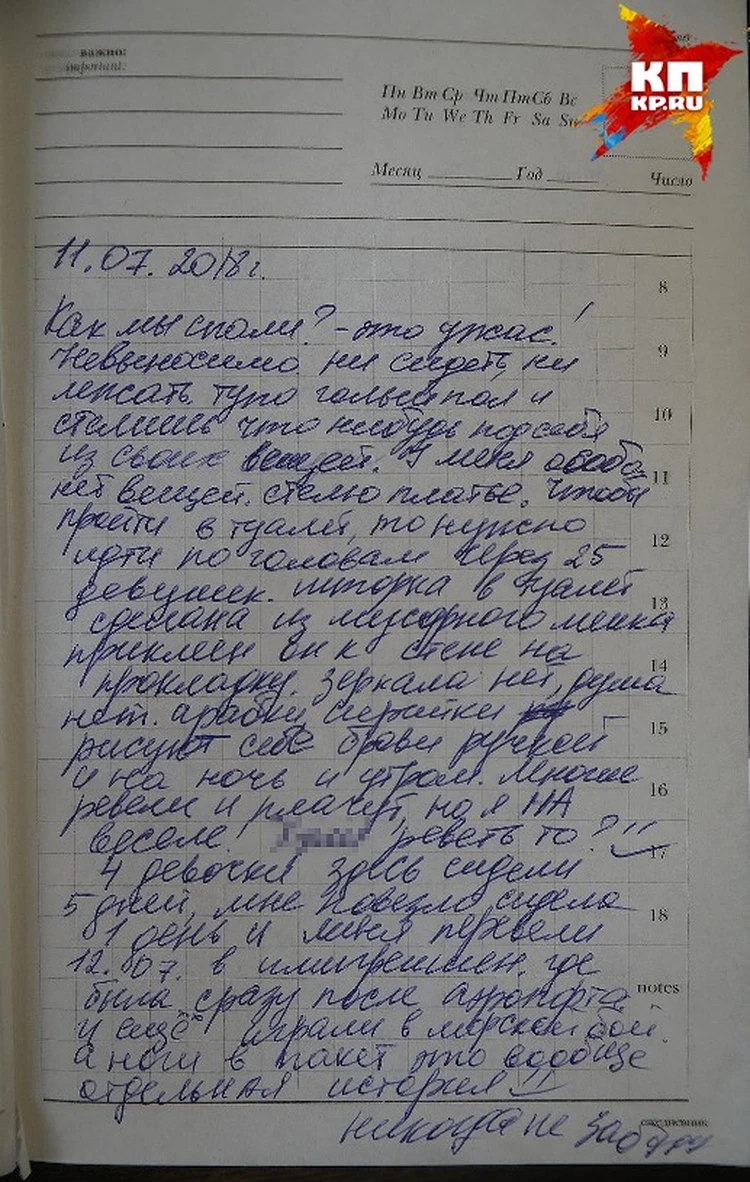 важно:
important:
КП
KP.RU
Пн Вт Ср Чт Пт Сб Вс
Mo Tu We Th Fr Sa Su
Месяц Год Число
11.07.2018г.
8
Как мы спали? - это ужас!
Невыносимо ни сидеть, ни
9
лежать. тупо голый пол и
10
стелишь что нибудь под себя
из своих вещей. У меня
11
нет вещей. стелю платье. Чтобы
пройти в туалет, то нужно
12
идти по головам через 25
девушек. шторка в туалет
13
сделана из мусорного мешка
приклеен он к стене на
14
прокладку. зеркала нет, душа
нет. арабки, сирийки
15
рисуют себе брови ручкой
и на ночь и утром. Многие
16
ревели и плачут, но я НА
веселе! реветь то?
17
4 девочки здесь сидели
5 дней, мне повезло, сидела
18
1 день и меня перевели
12.07. в имигрейшен. где
была сразу после аэропорта
notes
и ещё играли в морской бой
а ноги в пакет это вообще
отдельная история
ежедневник
никогда не забуду